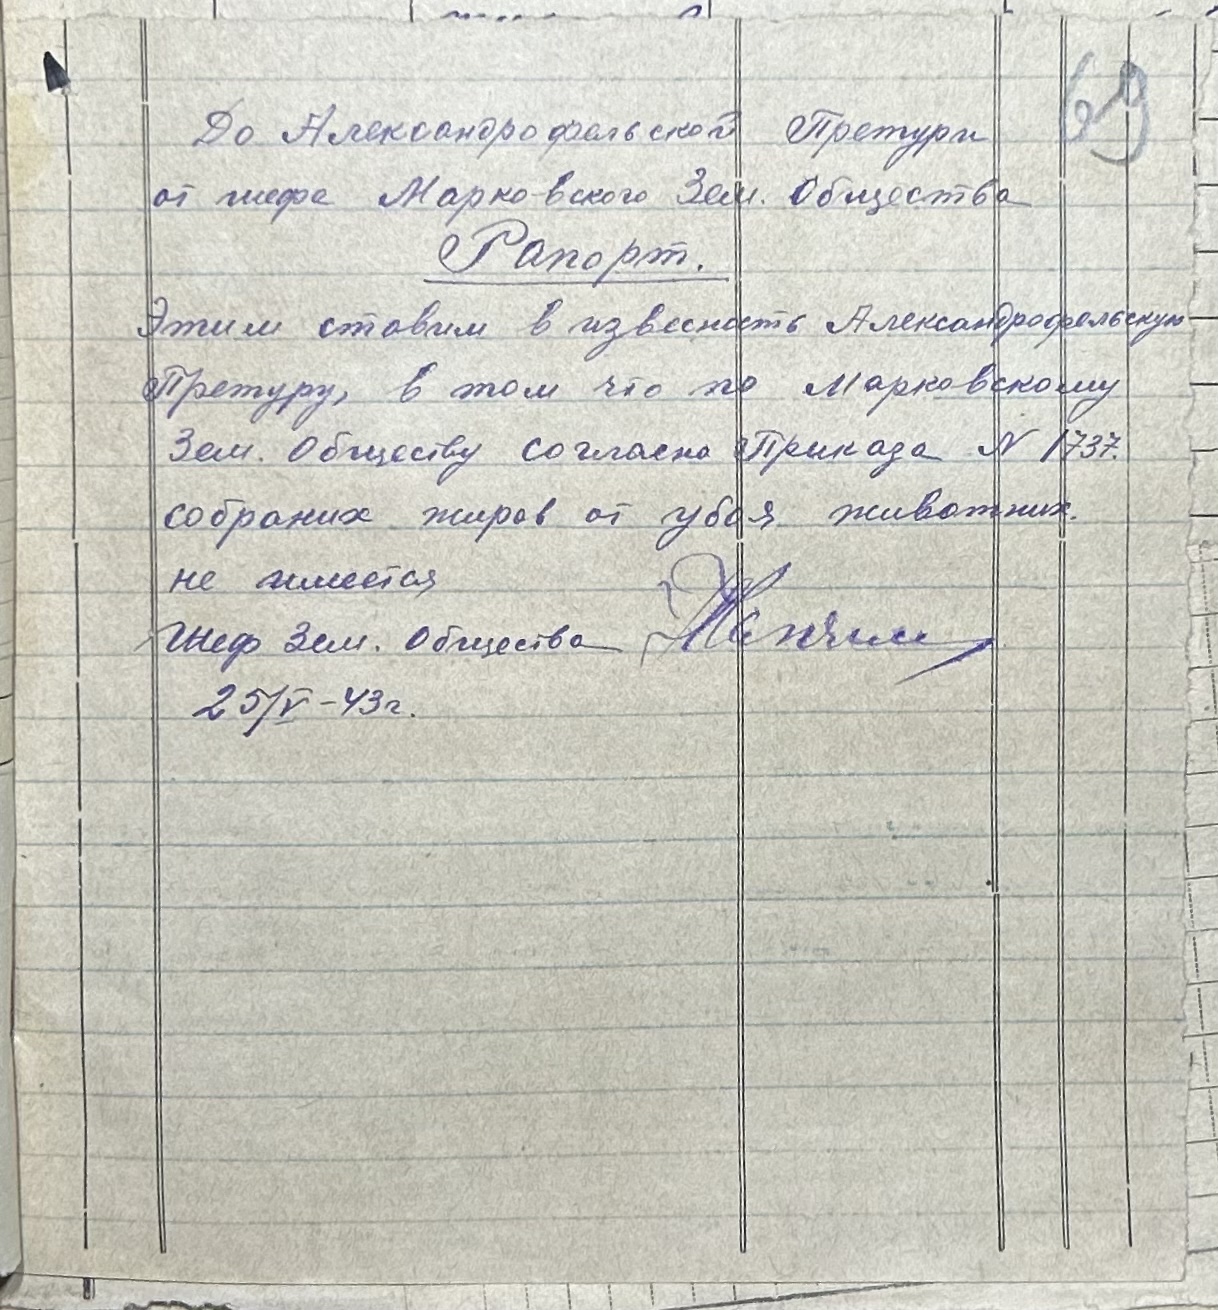 69
До Александрофельской Претури
от шефа Марковского Зем. Общества
Рапорт.
Этим ставим в извесность Александрофельскую
Претуру, в том что по Марковскому
Зем. Обществу согласна Приказа N 1737.
собраних жиров от убоя животних.
не имеется
Шеф Зем. Общества
25/V-43г.